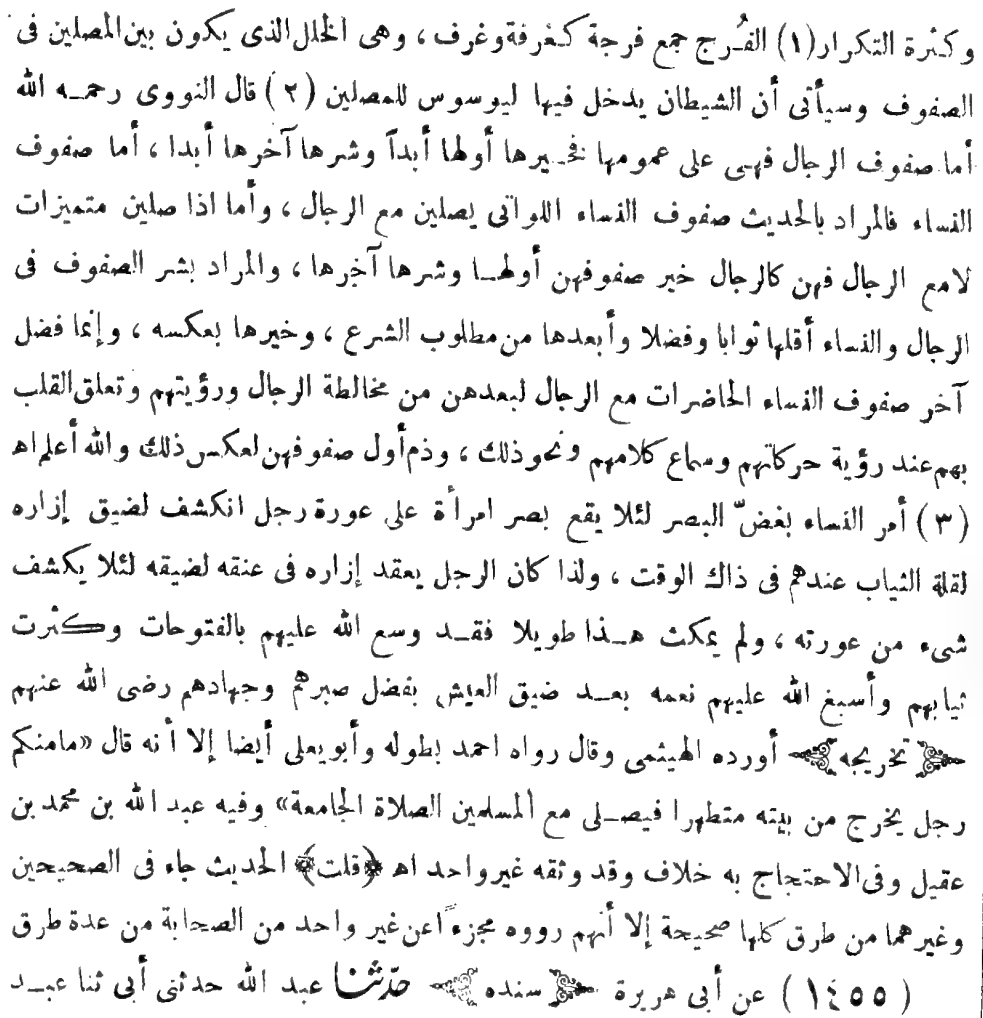 وكثرة التكرار (١) الفُرج جمع فرجة كغرفة وغرف ، وهى الخلل الذى يكون بين المصلين فى
الصفوف وسيأتى أن الشيطان يدخل فيها ليوسوس للمصلين (٢) قال النووى رحمه الله
أما صفوف الرجال فهى على عمومها فخيرها أولها أبداً وشرها آخرها أبدا ، أما صفوف
النساء فالمراد بالحديث صفوف النساء اللواتى يصلين مع الرجال ، وأما اذا صلين متميزات
لامع الرجال فهن كالرجال خير صفوفهن أولها وشرها آخرها ، والمراد بشر الصفوف فى
الرجال والنساء أقلها ثوابا وفضلا وأبعدها من مطلوب الشرع ، وخيرها بعكسه ، وإنما فضل
آخر صفوف النساء الحاضرات مع الرجال لبعدهن من مخالطة الرجال ورؤيتهم وتعلق القلب
بهم عند رؤية حركاتهم وسماع كلامهم ونحو ذلك ، وذم أول صفوفهن لعكس ذلك والله أعلم اهـ
(٣) أمر النساء بغضّ البصر لئلا يقع بصر امرأة على عورة رجل انكشف لضيق إزاره
لقلة الثياب عندهم فى ذاك الوقت ، ولذا كان الرجل يعقد إزاره فى عنقه لضيقه لئلا يكشف
شىء من عورته ، ولم يمكث هذا طويلا فقد وسع الله عليهم بالفتوحات وكثرت
ثيابهم وأسبغ الله عليهم نعمه بعد ضيق العيش بفضل صبرهم وجهادهم رضى الله عنهم
﴿تخريجه﴾ أورده الهيثمى وقال رواه احمد بطوله وأبو يعلى أيضا إلا أنه قال «مامنكم
رجل يخرج من بيته متطهرا فيصلى مع المسلمين الصلاة الجامعة» وفيه عبد الله بن محمد بن
عقيل وفى الاحتجاج به خلاف وقد وثقه غير واحد اهـ ﴿قلت﴾ الحديث جاء فى الصحيحين
وغيرهما من طرق كلها صحيحة إلا أنهم رووه مجزءًا عن غير واحد من الصحابة من عدة طرق
(١٤٥٥) عن أبى هريرة ﴿سنده﴾ حدّثنا عبد الله حدثنى أبى ثنا عبد